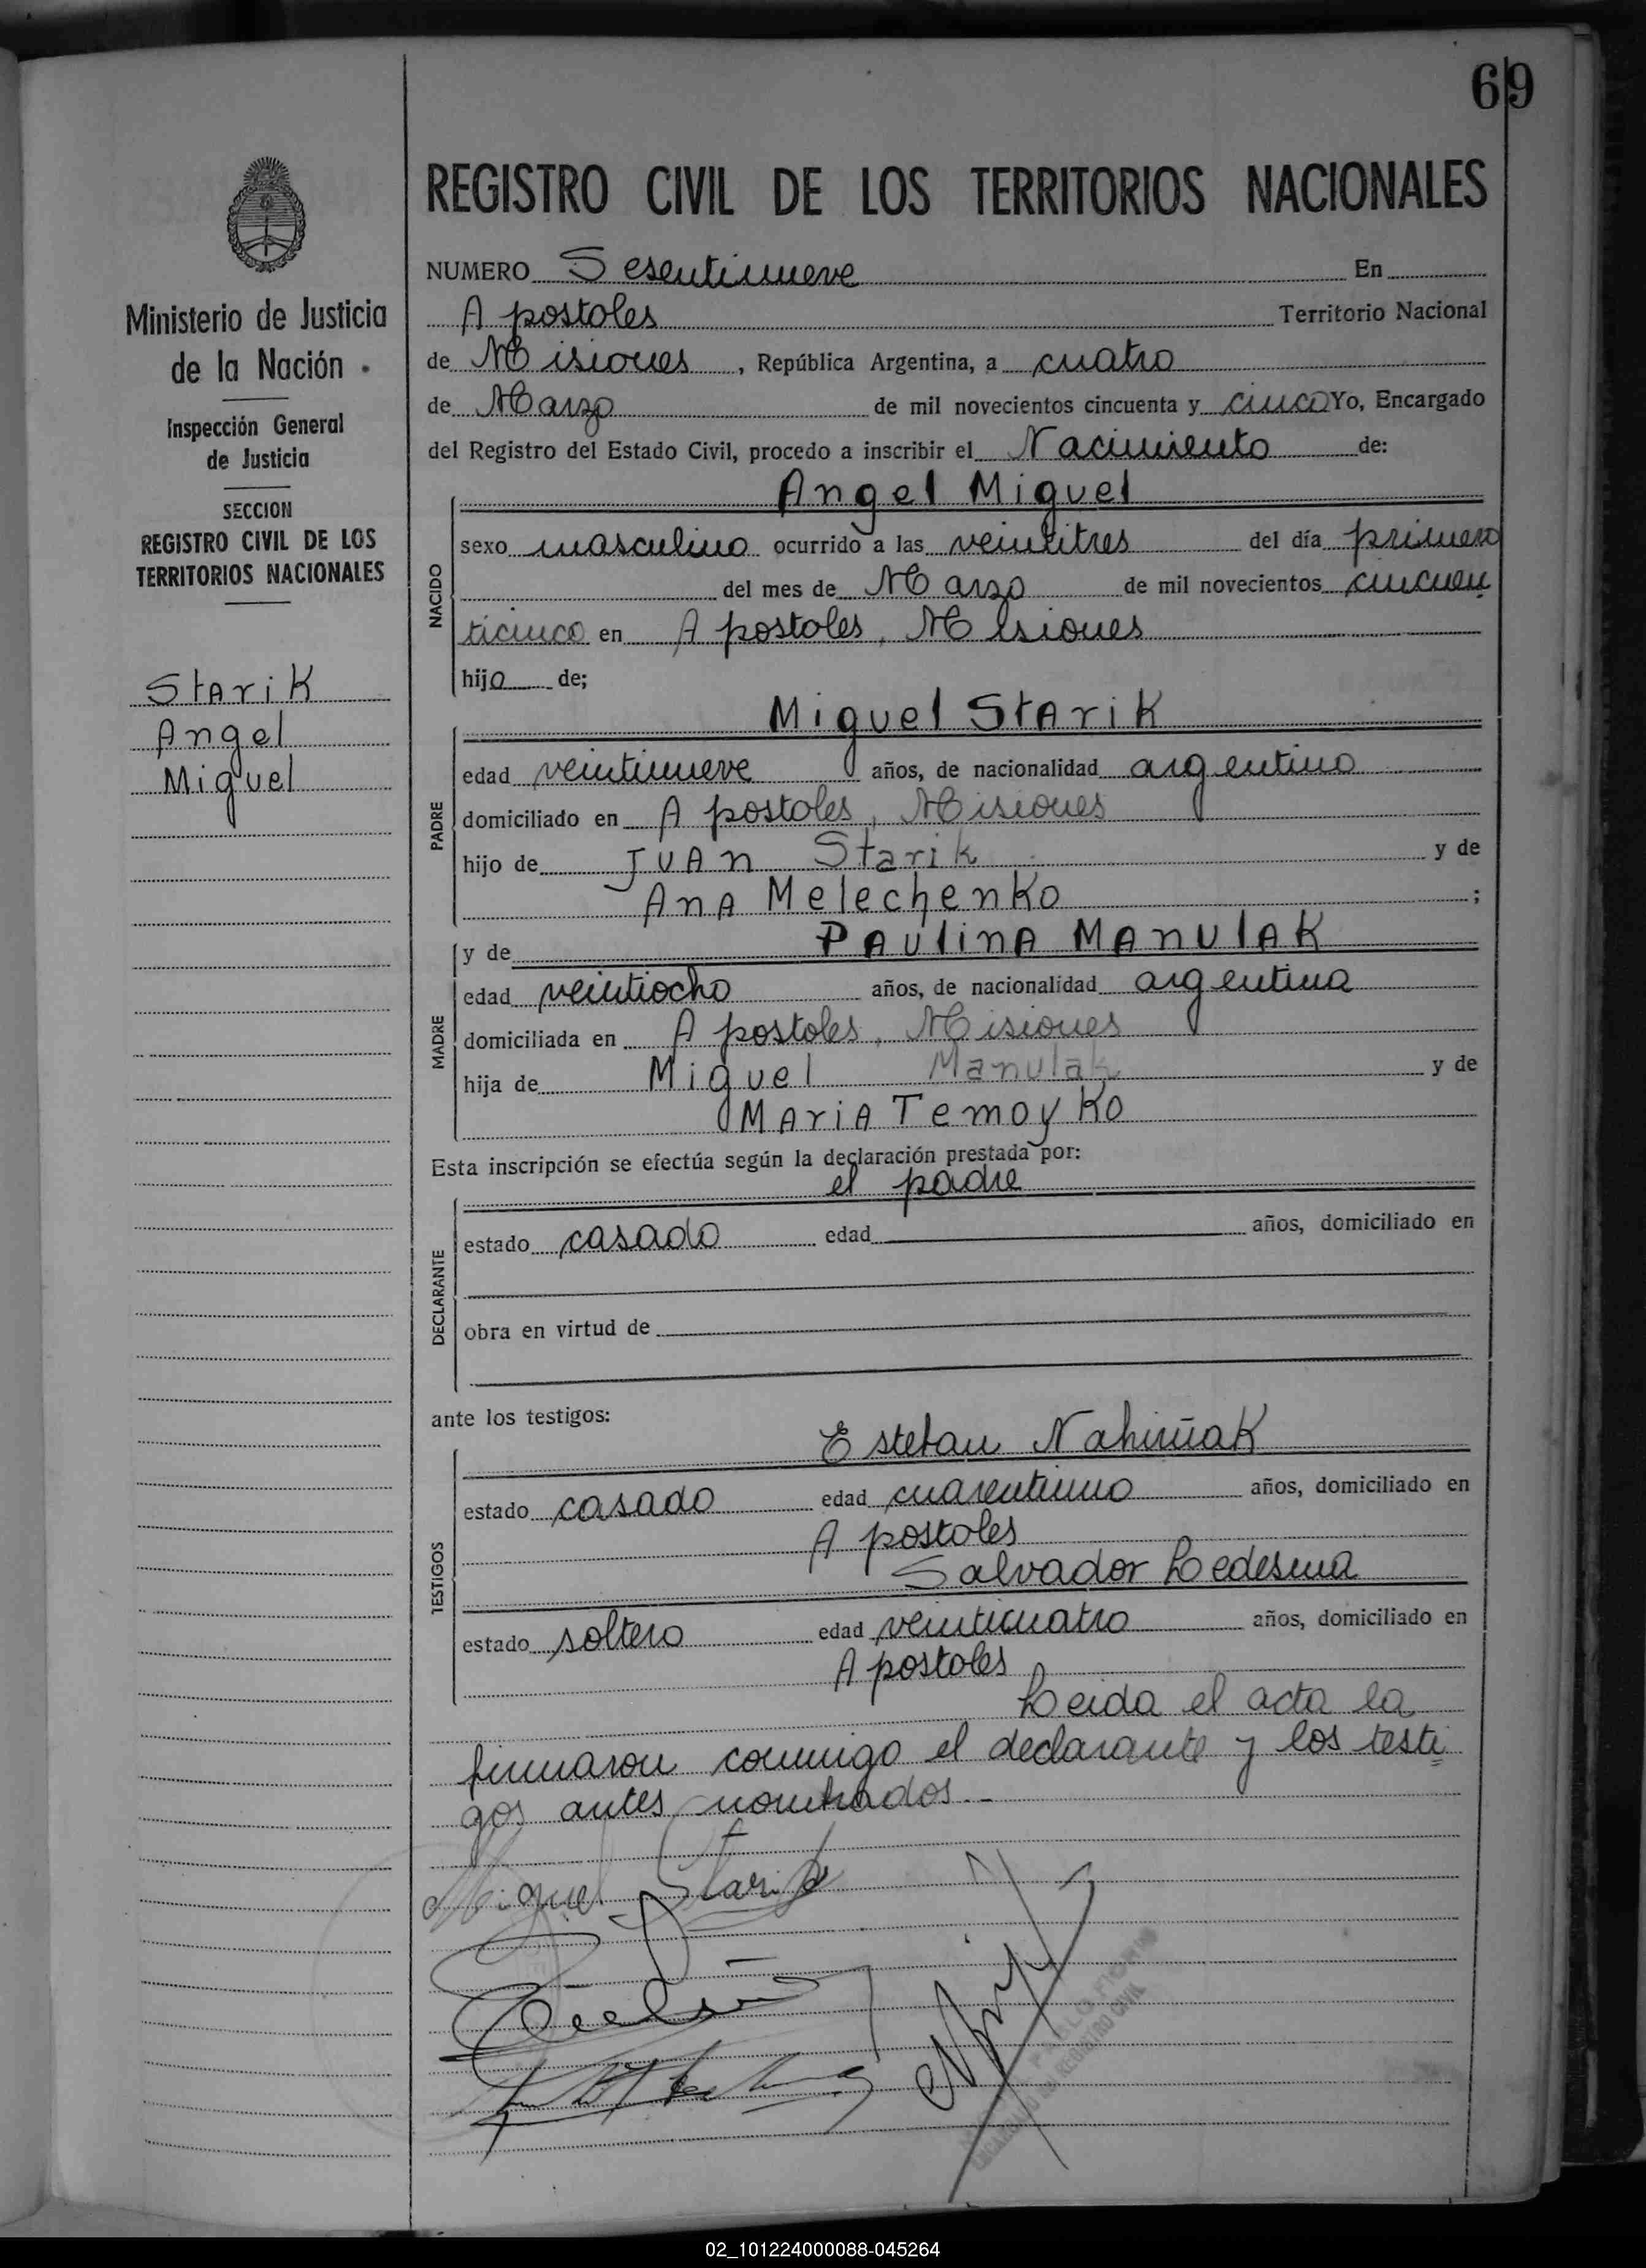 69
REGISTRO CIVIL DE LOS TERRITORIOS NACIONALES
Ministerio de Justicia
de la Nación
Inspección General
de Justicia
SECCION
REGISTRO CIVIL DE LOS
TERRITORIOS NACIONALES
Starik
Angel
Miguel
NUMERO Sesentinueve En
Apostoles Territorio Nacional
de Misiones, República Argentina, a cuatro
de Marzo de mil novecientos cincuenta y cinco Yo, Encargado
del Registro del Estado Civil, procedo a inscribir el Nacimiento de:
Angel Miguel
NACIDO
sexo masculino ocurrido a las veintitres del día primero
del mes de Marzo de mil novecientos cincuen
ticinco en Apostoles, Misiones
hijo de;
Miguel Starik
PADRE
edad veintinueve años, de nacionalidad argentino
domiciliado en Apostoles, Misiones
hijo de Juan Starik y de
Ana Melechenko ;
y de Paulina Manulak
MADRE
edad veintiocho años, de nacionalidad argentina
domiciliada en Apostoles, Misiones
hija de Miguel Manulak y de
Maria Temoyko
Esta inscripción se efectúa según la declaración prestada por:
el padre
DECLARANTE
estado casado edad años, domiciliado en
obra en virtud de
ante los testigos:
Esteban Nahirñak
TESTIGOS
estado casado edad cuarentiuno años, domiciliado en
Apostoles
Salvador Ledesma
estado soltero edad veinticuatro años, domiciliado en
Apostoles
Leida el acta la
firmaron conmigo el declarante y los testi
gos antes nombrados.-
Miguel Starik
REGISTRO CIVIL
02_101224000088-045264